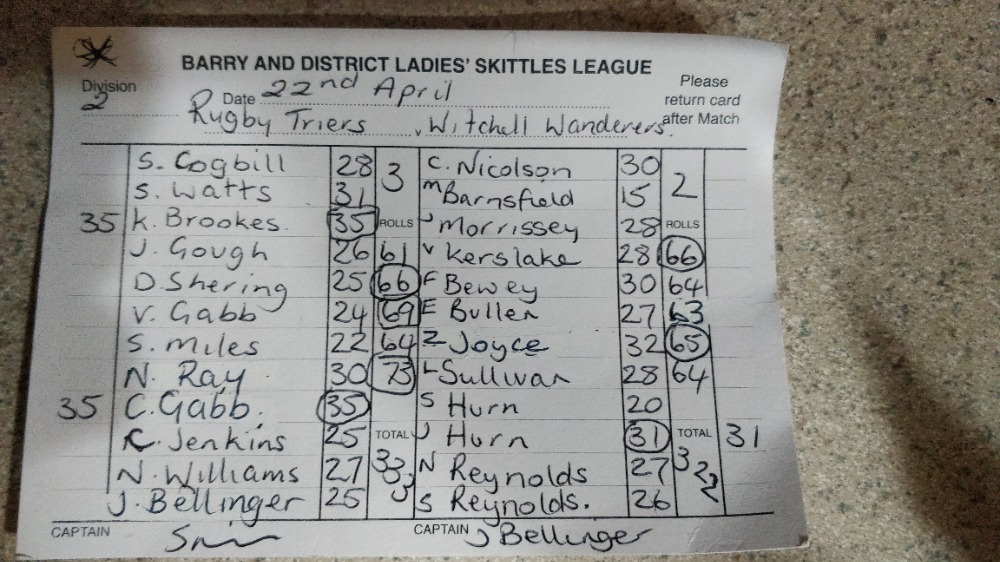 BARRY AND DISTRICT LADIES' SKITTLES LEAGUE
Division 2
Date 22nd April
Please return card after Match
Rugby Triers v Witchell Wanderers.
S. Cogbill 28 3 C. Nicolson 30 2
S. Watts 31 M Barnsfield 15
35 K. Brookes. 35 ROLLS J Morrissey 28 ROLLS
J. Gough 26 61 V Kerslake 28 66
D. Shering 25 66 F Bewey 30 64
V. Gabb 24 69 E Bullen 27 63
S. Miles 22 64 Z Joyce 32 65
N. Ray 30 73 L Sullivan 28 64
35 C. Gabb. 35 S Hurn 20
K. Jenkins 25 TOTAL J Hurn 31 TOTAL 31
N. Williams 27 333 N Reynolds 27 322
J. Bellinger 25 S Reynolds. 26
CAPTAIN CAPTAIN J Bellinger